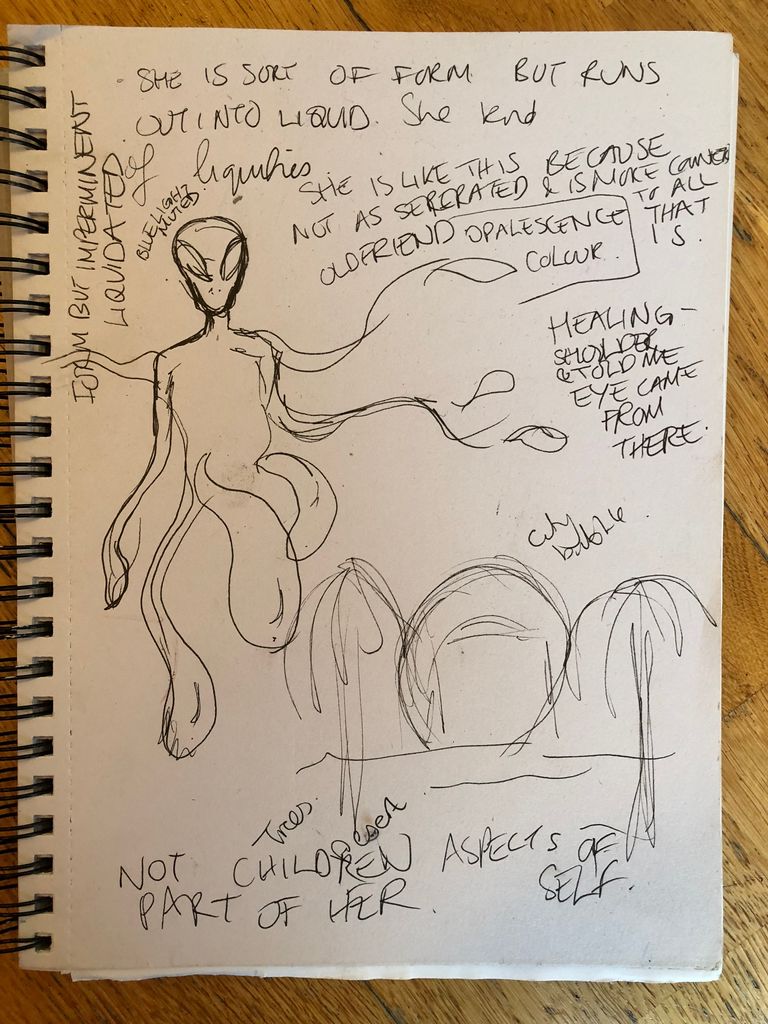 SHE IS SORT OF FORM BUT RUNS
OUT INTO LIQUID. She kind
of liquifies
FORM BUT IMPERMINENT
LIQUIDATED
BLUE LIGHT
MUTED
SHE IS LIKE THIS BECAUSE
NOT AS SEPERATED & IS MORE
TO ALL
THAT
IS.
OLD FRIEND OPALESCENCE
COLOUR.
HEALING -
SHOULDER
& TOLD ME
EYE CAME
FROM
THERE.
city
bubble
Trees.
NOT CHILDREN ASPECTS OF
SELF.
PART OF HER.